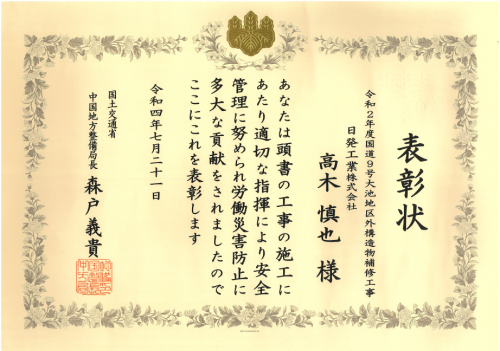 表彰状
令和2年度国道9号大池地区外構造物補修工事
日発工業株式会社
高木 慎也 様
あなたは頭書の工事の施工に
あたり適切な指揮により安全
管理に努められ労働災害防止に
多大な貢献をされましたので
ここにこれを表彰します
令和四年七月二十一日
国土交通省
中国地方整備局長 森戸義貴